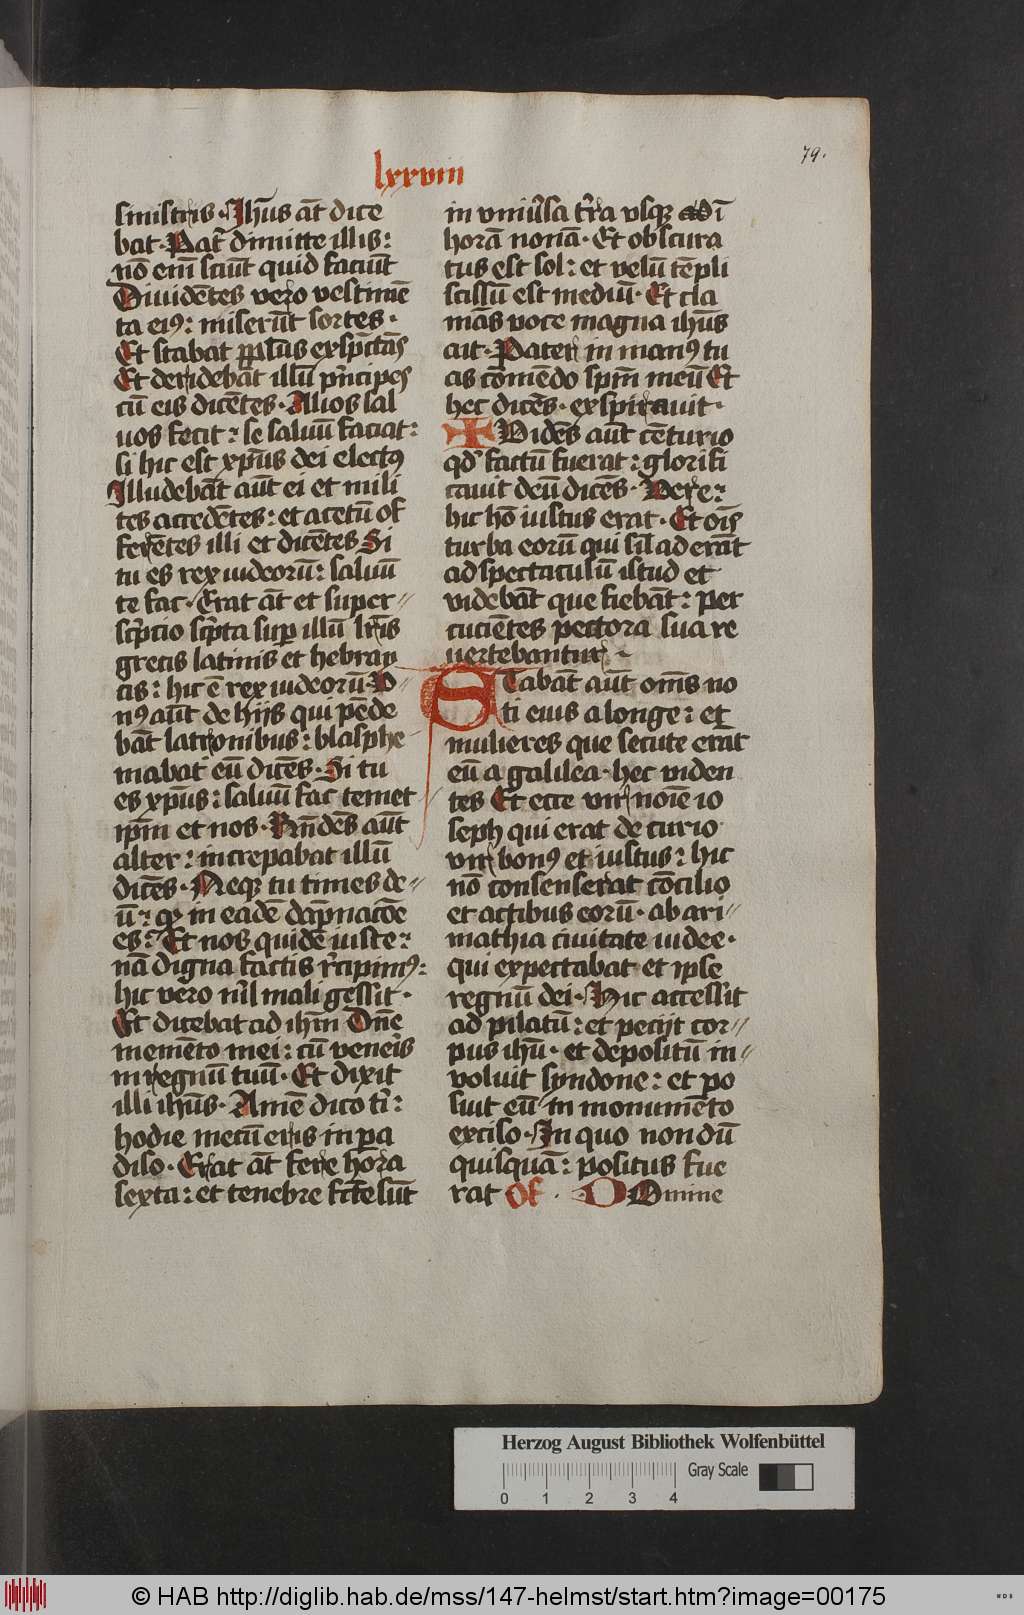 79.
lxxviii
sinistris · Jhūs āt dice
bat · Pat̄ dimitte illis:
nō enī sciūt quid faciūt
Diuidētes vero vestimē
ta ei9: miserūt sortes ·
Et stabat pplūs exspc̄tās
Et deridebāt illū pn̄cipes
cū eis dicētes · Alios sal
uos fecit: se saluū faciat:
si hic est xpūs dei elect9
Illudebāt aūt ei et mili
tes accedētes: et acetū of
ferētes illi et dicētes Si
tu es rex iudeorū: saluū
te fac · Erat āt et super//
sc̄pcio sc̄pta sup illū lr̄is
grecis latinis et hebray
cis: hic ē rex iudeorū · V//
n9 aūt de hijs qui pēde
bāt latronibus: blasphe
mabat eū dicēs · Si tu
es xpūs: saluū fac temet
ipm̄ et nos · Rn̄dēs aūt
alter: increpabat illū
dicēs · Neqꝫ tu times de//
ū: qꝫ in eadē dāpnacōe
es: Et nos quidē iuste:
nā digna factis rēcipim9:
hic vero nīl mali gessit ·
Et dicebat ad ihm̄ Dn̄e
memēto mei: cū veneīs
in regnū tuū · Et dixit
illi ihūs · Amē dico tī:
hodie mecū eris in pa
diso · Erat āt fere hora
sexta: et tenebre fc̄te sūt
in vniūsa tr̄a vsqꝫ ad ī
horā nonā · Et obscura
tus est sol: et velū tēpli
scissū est mediū · Et cla
mās voce magna ihūs
ait · Pater in man9 tu
as cōmēdo spm̄ meū Et
hec dicēs · exspirauit ·
Vidēs aūt cēturio
qd̄ factū fuerat: glorifi
cauit deū dicēs · Vere:
hic hō iustus erat · Et oīs
turba eorū qui sīl aderāt
ad spectaculū istud et
videbāt que fiebāt: per
cuciētes pectora sua re
uertebantur
Stabāt aūt oīns no
ti eius a longe: et
mulieres que secute erāt
eū a galilea · hec viden
tes Et ecce vir noīe io
seph qui erat de curio
vir bon9 et iustus: hic
nō consenserat cōcilio
et actibus eorū · ab ari//
mathia ciuitate iudee ·
qui expectabat et ipse
regnū dei · Hic accessit
ad pilatū: et pecijt cor//
pus ihū · et depositū in//
voluit syndone: et po
suit eū in monumēto
exciso · In quo nondū
quisquā: positus fue
rat Of · Domine
Herzog August Bibliothek Wolfenbüttel
Gray Scale
0 1 2 3 4
© HAB http://diglib.hab.de/mss/147-helmst/start.htm?image=00175